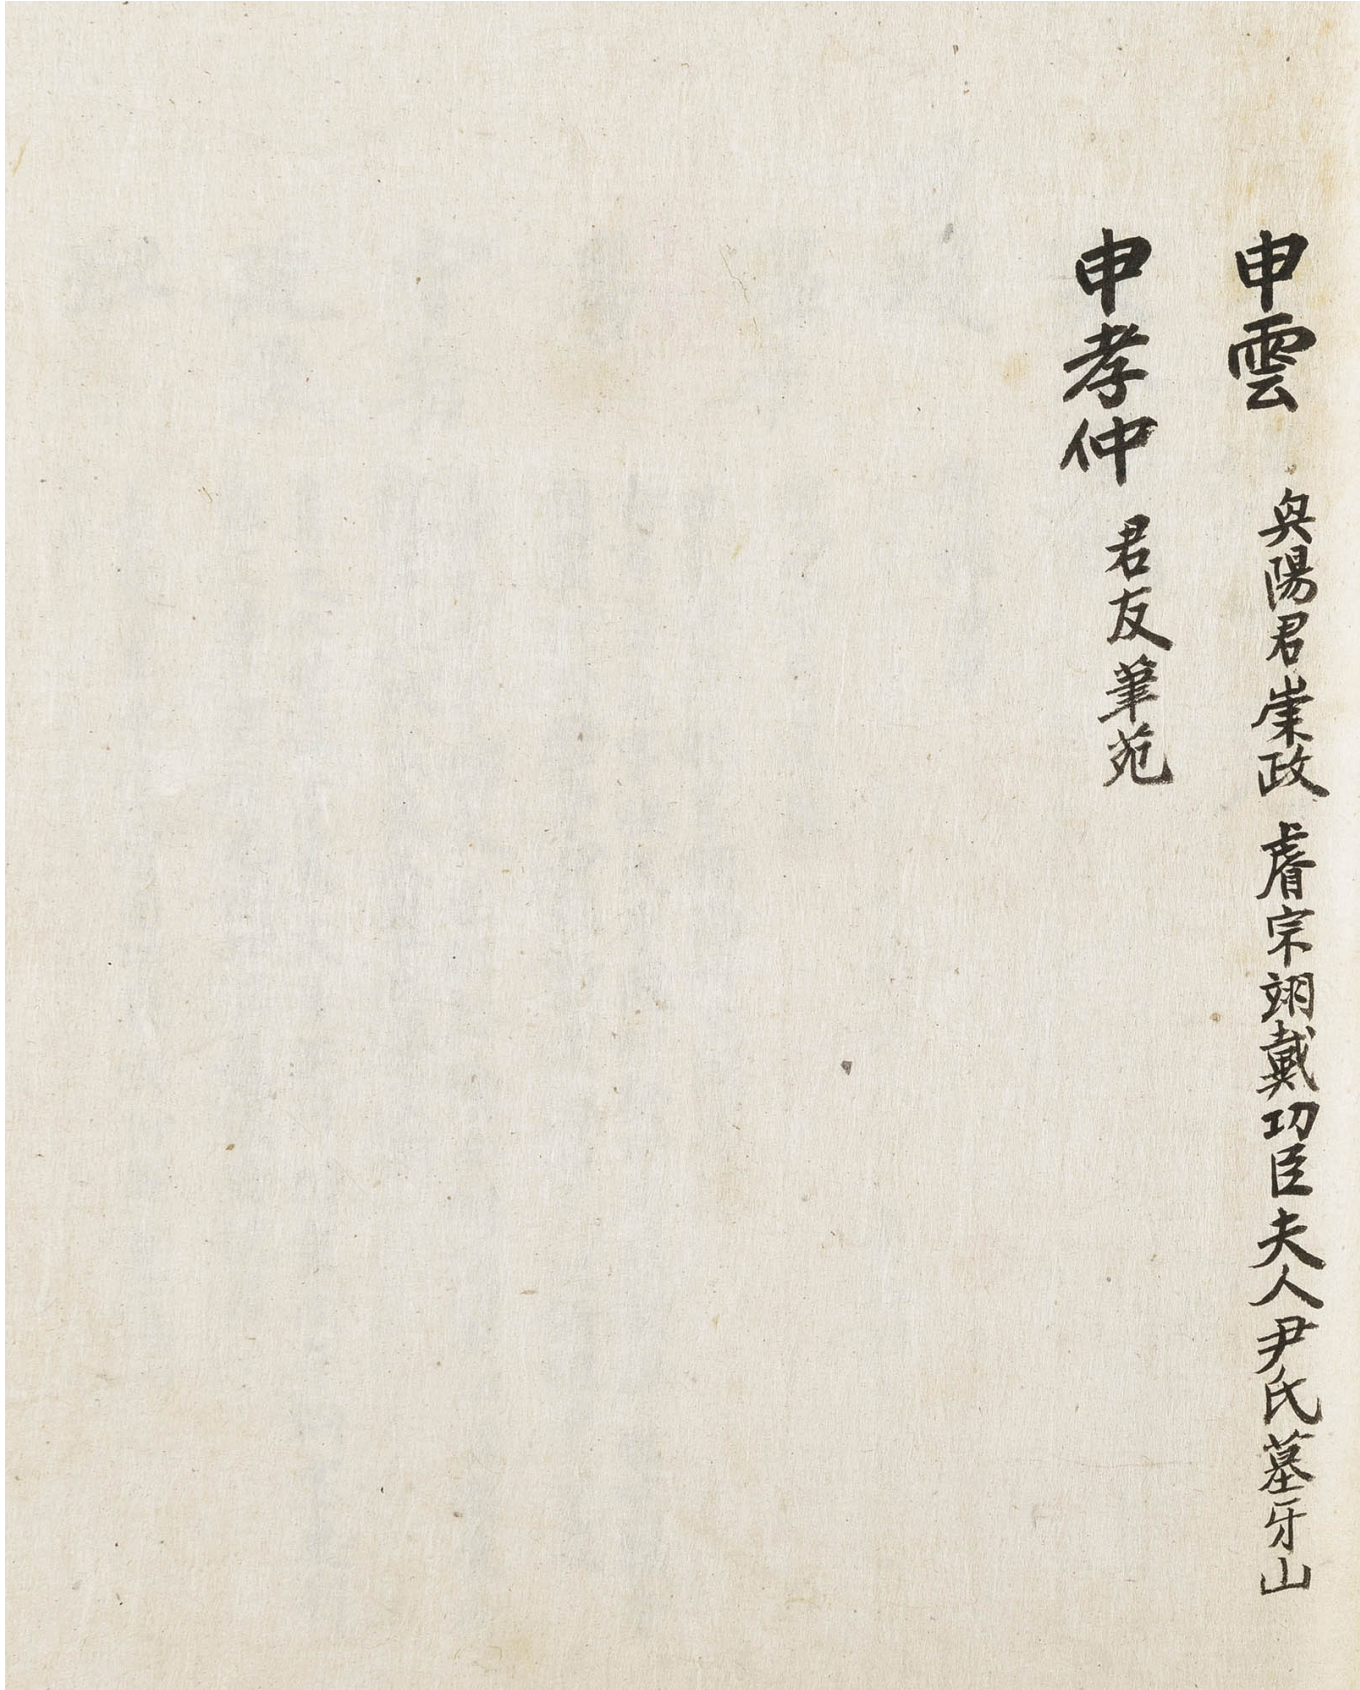 申雲 興陽君崇政 睿宗翊戴功臣夫人尹氏墓牙山
申孝仲 君友筆苑